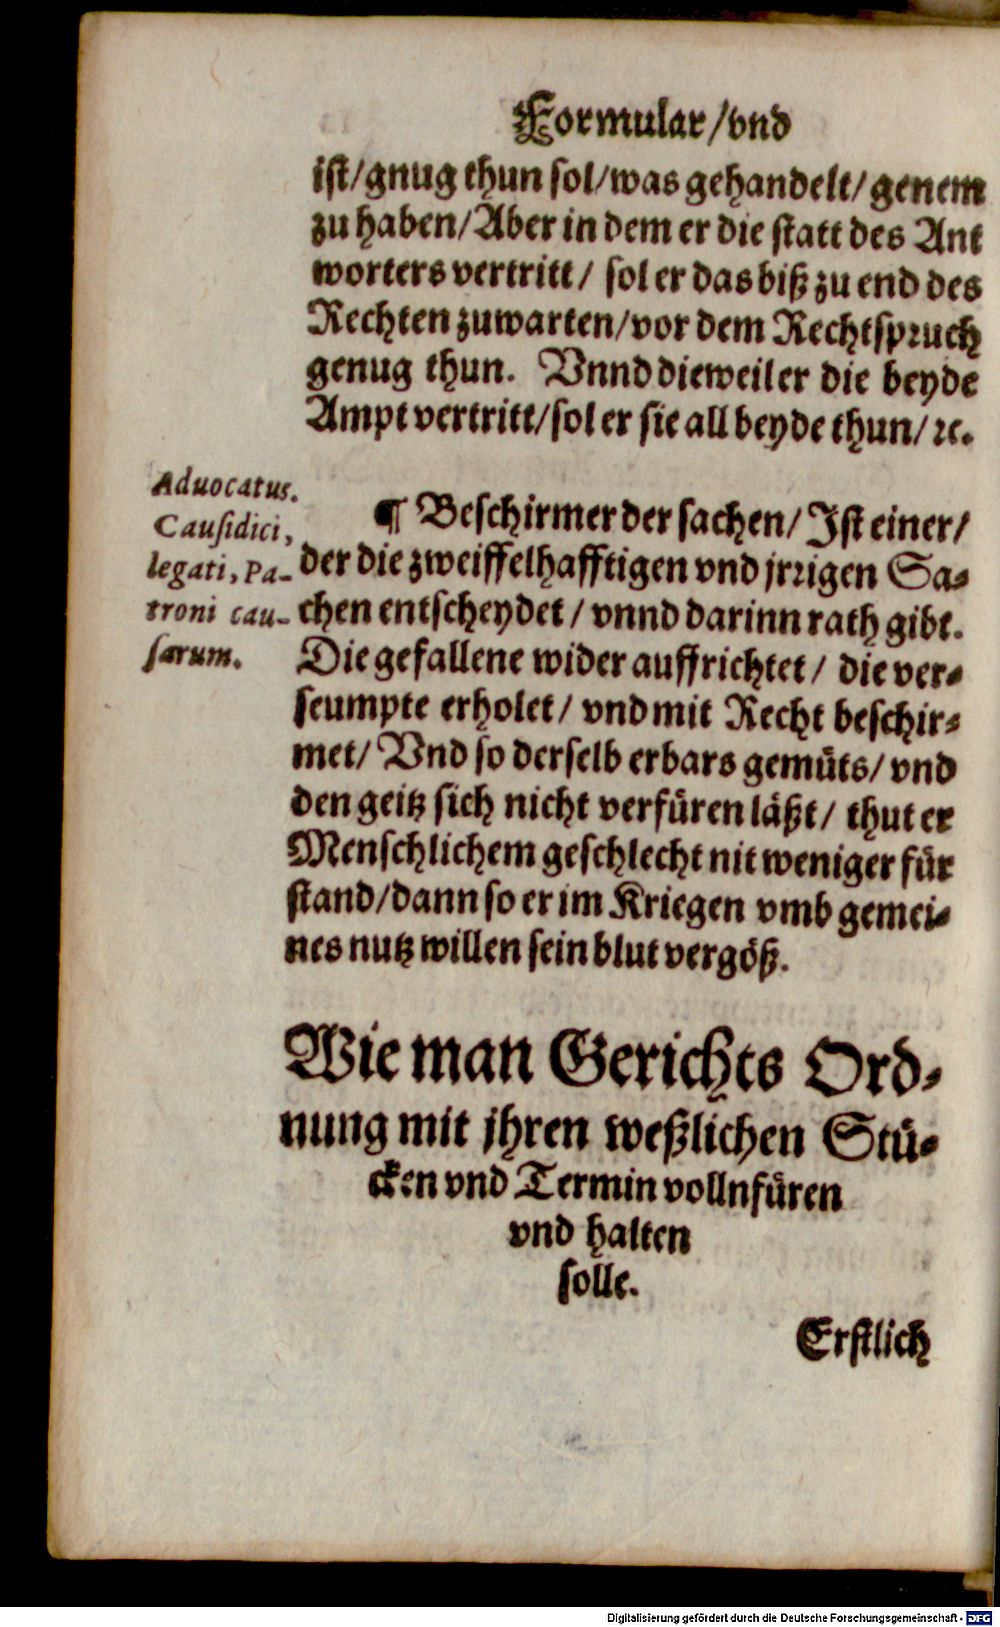 Formular/vnd
ist/gnug thun sol/was gehandelt/genem
zu haben/Aber in dem er die statt des Ant
worters vertritt/ sol er das biß zu end des
Rechten zuwarten/vor dem Rechtspruch
genug thun. Vnnd dieweil er die beyde
Ampt vertritt/sol er sie all beyde thun/ ꝛc.
Aduocatus.
Causidici,
legati, Pa-
troni cau-
sarum.
¶ Beschirmer der sachen/ Ist einer/
der die zweiffelhafftigen vnd jrrigen Sa-
chen entscheydet/ vnnd darinn rath gibt.
Die gefallene wider auffrichtet/ die ver-
seumpte erholet/ vnd mit Recht beschir-
met/ Vnd so derselb erbars gemüts/ vnd
den geitz sich nicht verfüren läßt/ thut er
Menschlichem geschlecht nit weniger für
stand/dann so er im Kriegen vmb gemei-
nes nutz willen sein blut vergöß.
Wie man Gerichts Ord-
nung mit jhren weßlichen Stü-
cken vnd Termin vollnfüren
vnd halten
solle.
Erstlich
Digitalisierung gefördert durch die Deutsche Forschungsgemeinschaft - DFG